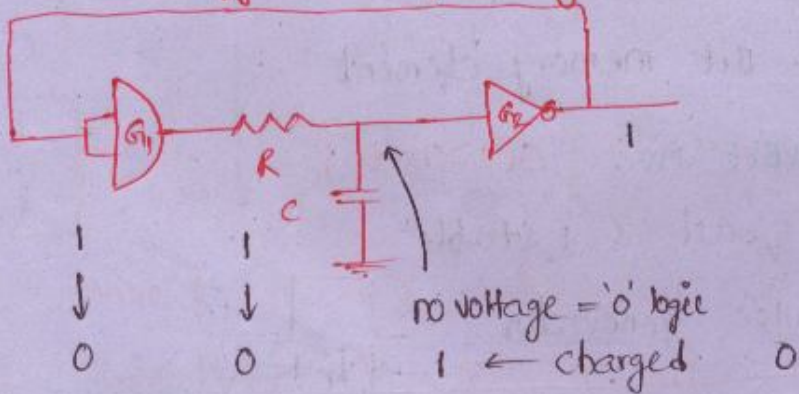 G1
R
C
G2
1
1
1
↓
↓
no voltage = '0' logic
0
0
1 ← charged
0